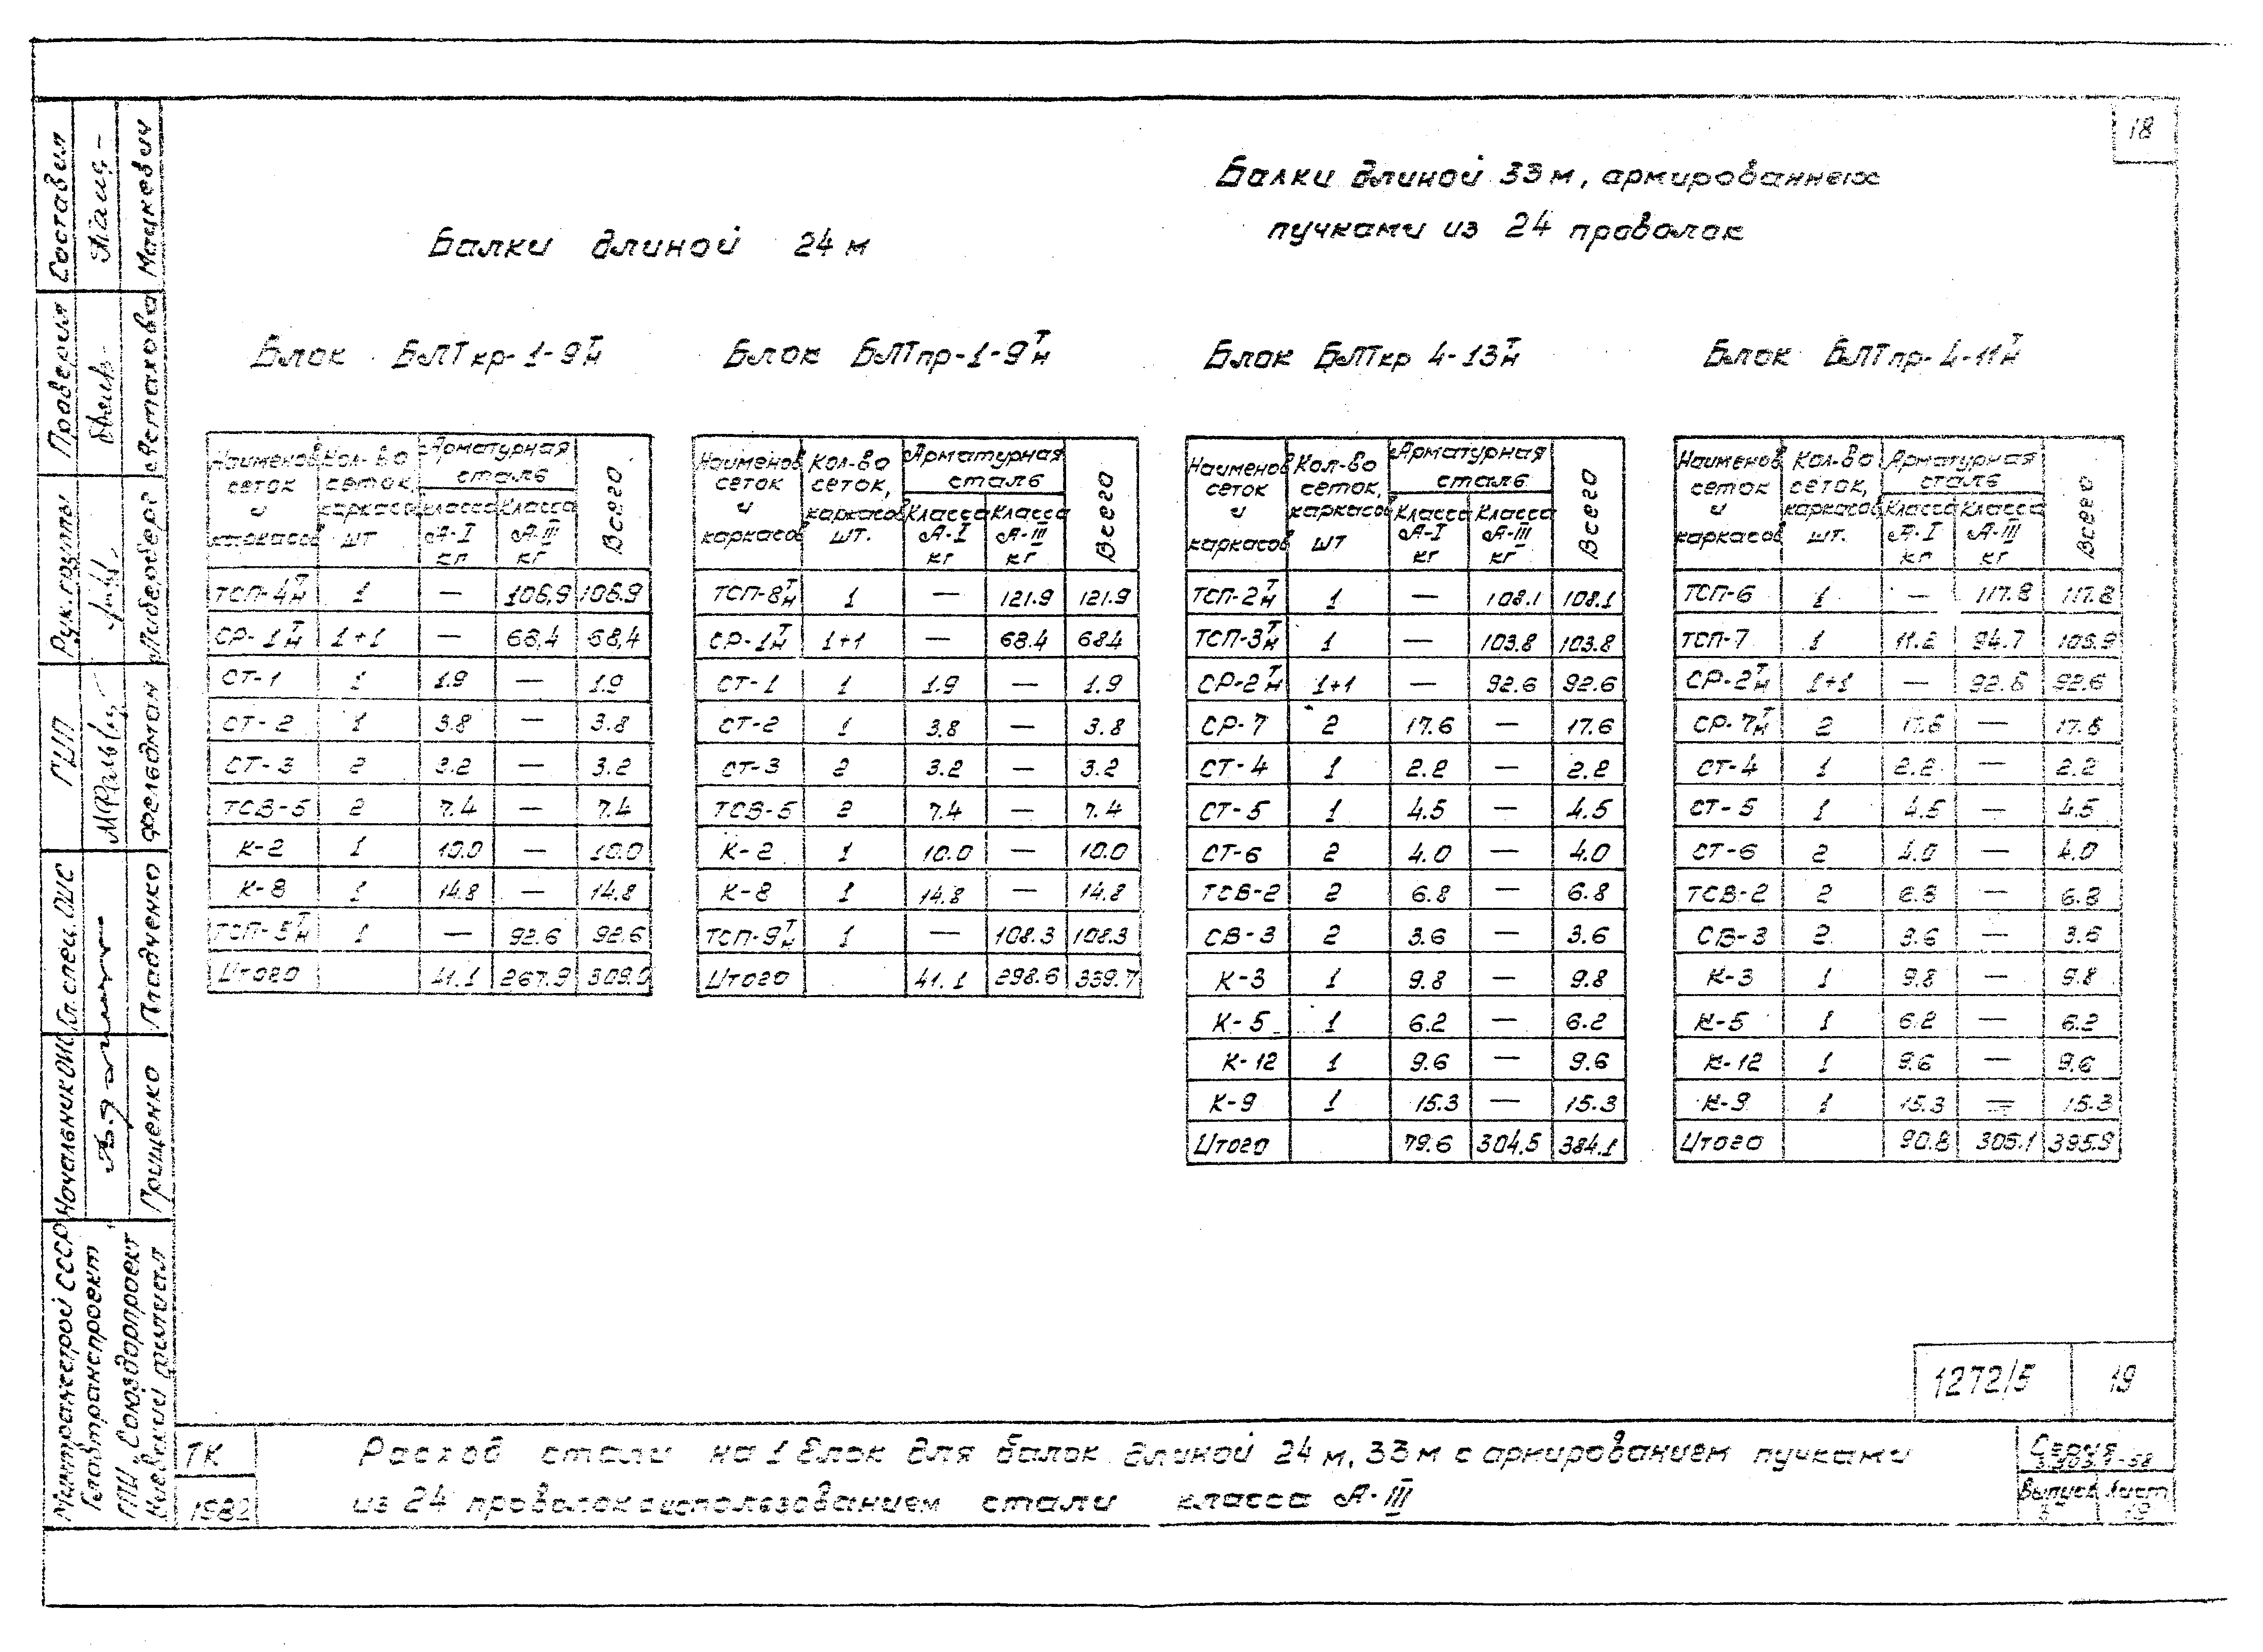 18
Балки длиной 24 м
Балки длиной 33 м, армированных
пучками из 24 проволок
Блок БЛТкр-1-9Тн
Наименов сеток и каркасов | Кол-во сеток, каркасов шт | Арматурная сталь класса А-I кг | Класса А-III кг | Всего
ТСП-4Тн 1 — 106,9 106.9
СР-1Тн 1+1 — 68,4 68,4
СТ-1 1 1.9 — 1.9
СТ-2 1 3.8 — 3.8
СТ-3 2 3.2 — 3.2
ТСВ-5 2 7.4 — 7.4
К-2 1 10.0 — 10.0
К-8 1 14.8 — 14.8
ТСП-5Тн 1 — 92.6 92.6
Итого 41.1 267.9 309.0
Блок БЛТпр-1-9Тн
Наименов сеток и каркасов | Кол-во сеток, каркасов шт. | Арматурная сталь Класса А-I кг | Класса А-III кг | Всего
ТСП-8Тн 1 — 121.9 121.9
СР-1Тн 1+1 — 68.4 68.4
СТ-1 1 1.9 — 1.9
СТ-2 1 3.8 — 3.8
СТ-3 2 3.2 — 3.2
ТСВ-5 2 7.4 — 7.4
К-2 1 10.0 — 10.0
К-8 1 14.8 — 14.8
ТСП-9Тн 1 — 108.3 108.3
Итого 41.1 298.6 339.7
Блок БЛТкр 4-13Тн
Наименов сеток и каркасов | Кол-во сеток, каркасов шт | Арматурная сталь Класса А-I кг | Класса А-III кг | Всего
ТСП-2Тн 1 — 108.1 108.1
ТСП-3Тн 1 — 103.8 103.8
СР-2Тн 1+1 — 92.6 92.6
СР-7 2 17.6 — 17.6
СТ-4 1 2.2 — 2.2
СТ-5 1 4.5 — 4.5
СТ-6 2 4.0 — 4.0
ТСВ-2 2 6.8 — 6.8
СВ-3 2 3.6 — 3.6
К-3 1 9.8 — 9.8
К-5 1 6.2 — 6.2
К-12 1 9.6 — 9.6
К-9 1 15.3 — 15.3
Итого 79.6 304.5 384.1
Блок БЛТпр-4-11Тн
Наименов сеток и каркасов | Кол-во сеток, каркасов шт. | Арматурная сталь Класса А-I кг | Класса А-III кг | Всего
ТСП-6 1 — 117.8 117.8
ТСП-7 1 11.2 94.7 105.9
СР-2Тн 1+1 — 92.6 92.6
СР-7Тн 2 17.6 — 17.6
СТ-4 1 2.2 — 2.2
СТ-5 1 4.5 — 4.5
СТ-6 2 4.0 — 4.0
ТСВ-2 2 6.8 — 6.8
СВ-3 2 3.6 — 3.6
К-3 1 9.8 — 9.8
К-5 1 6.2 — 6.2
К-12 1 9.6 — 9.6
К-9 1 15.3 — 15.3
Итого 90.8 305.1 395.9
1272/5 19
ТК
1982
Расход стали на 1 блок для балок длиной 24 м, 33 м с армированием пучками
из 24 проволок с использованием стали класса А-III
Серия
Выпуск Лист
Составил Мацкевич
Проверил
Рук. группы
ГИП Фельдман
Гл. спец. ОИС
Начальник ОИС Грищенко
Минтрансстрой СССР
Главтранспроект
ГПИ „Союздорпроект
Киевский филиал